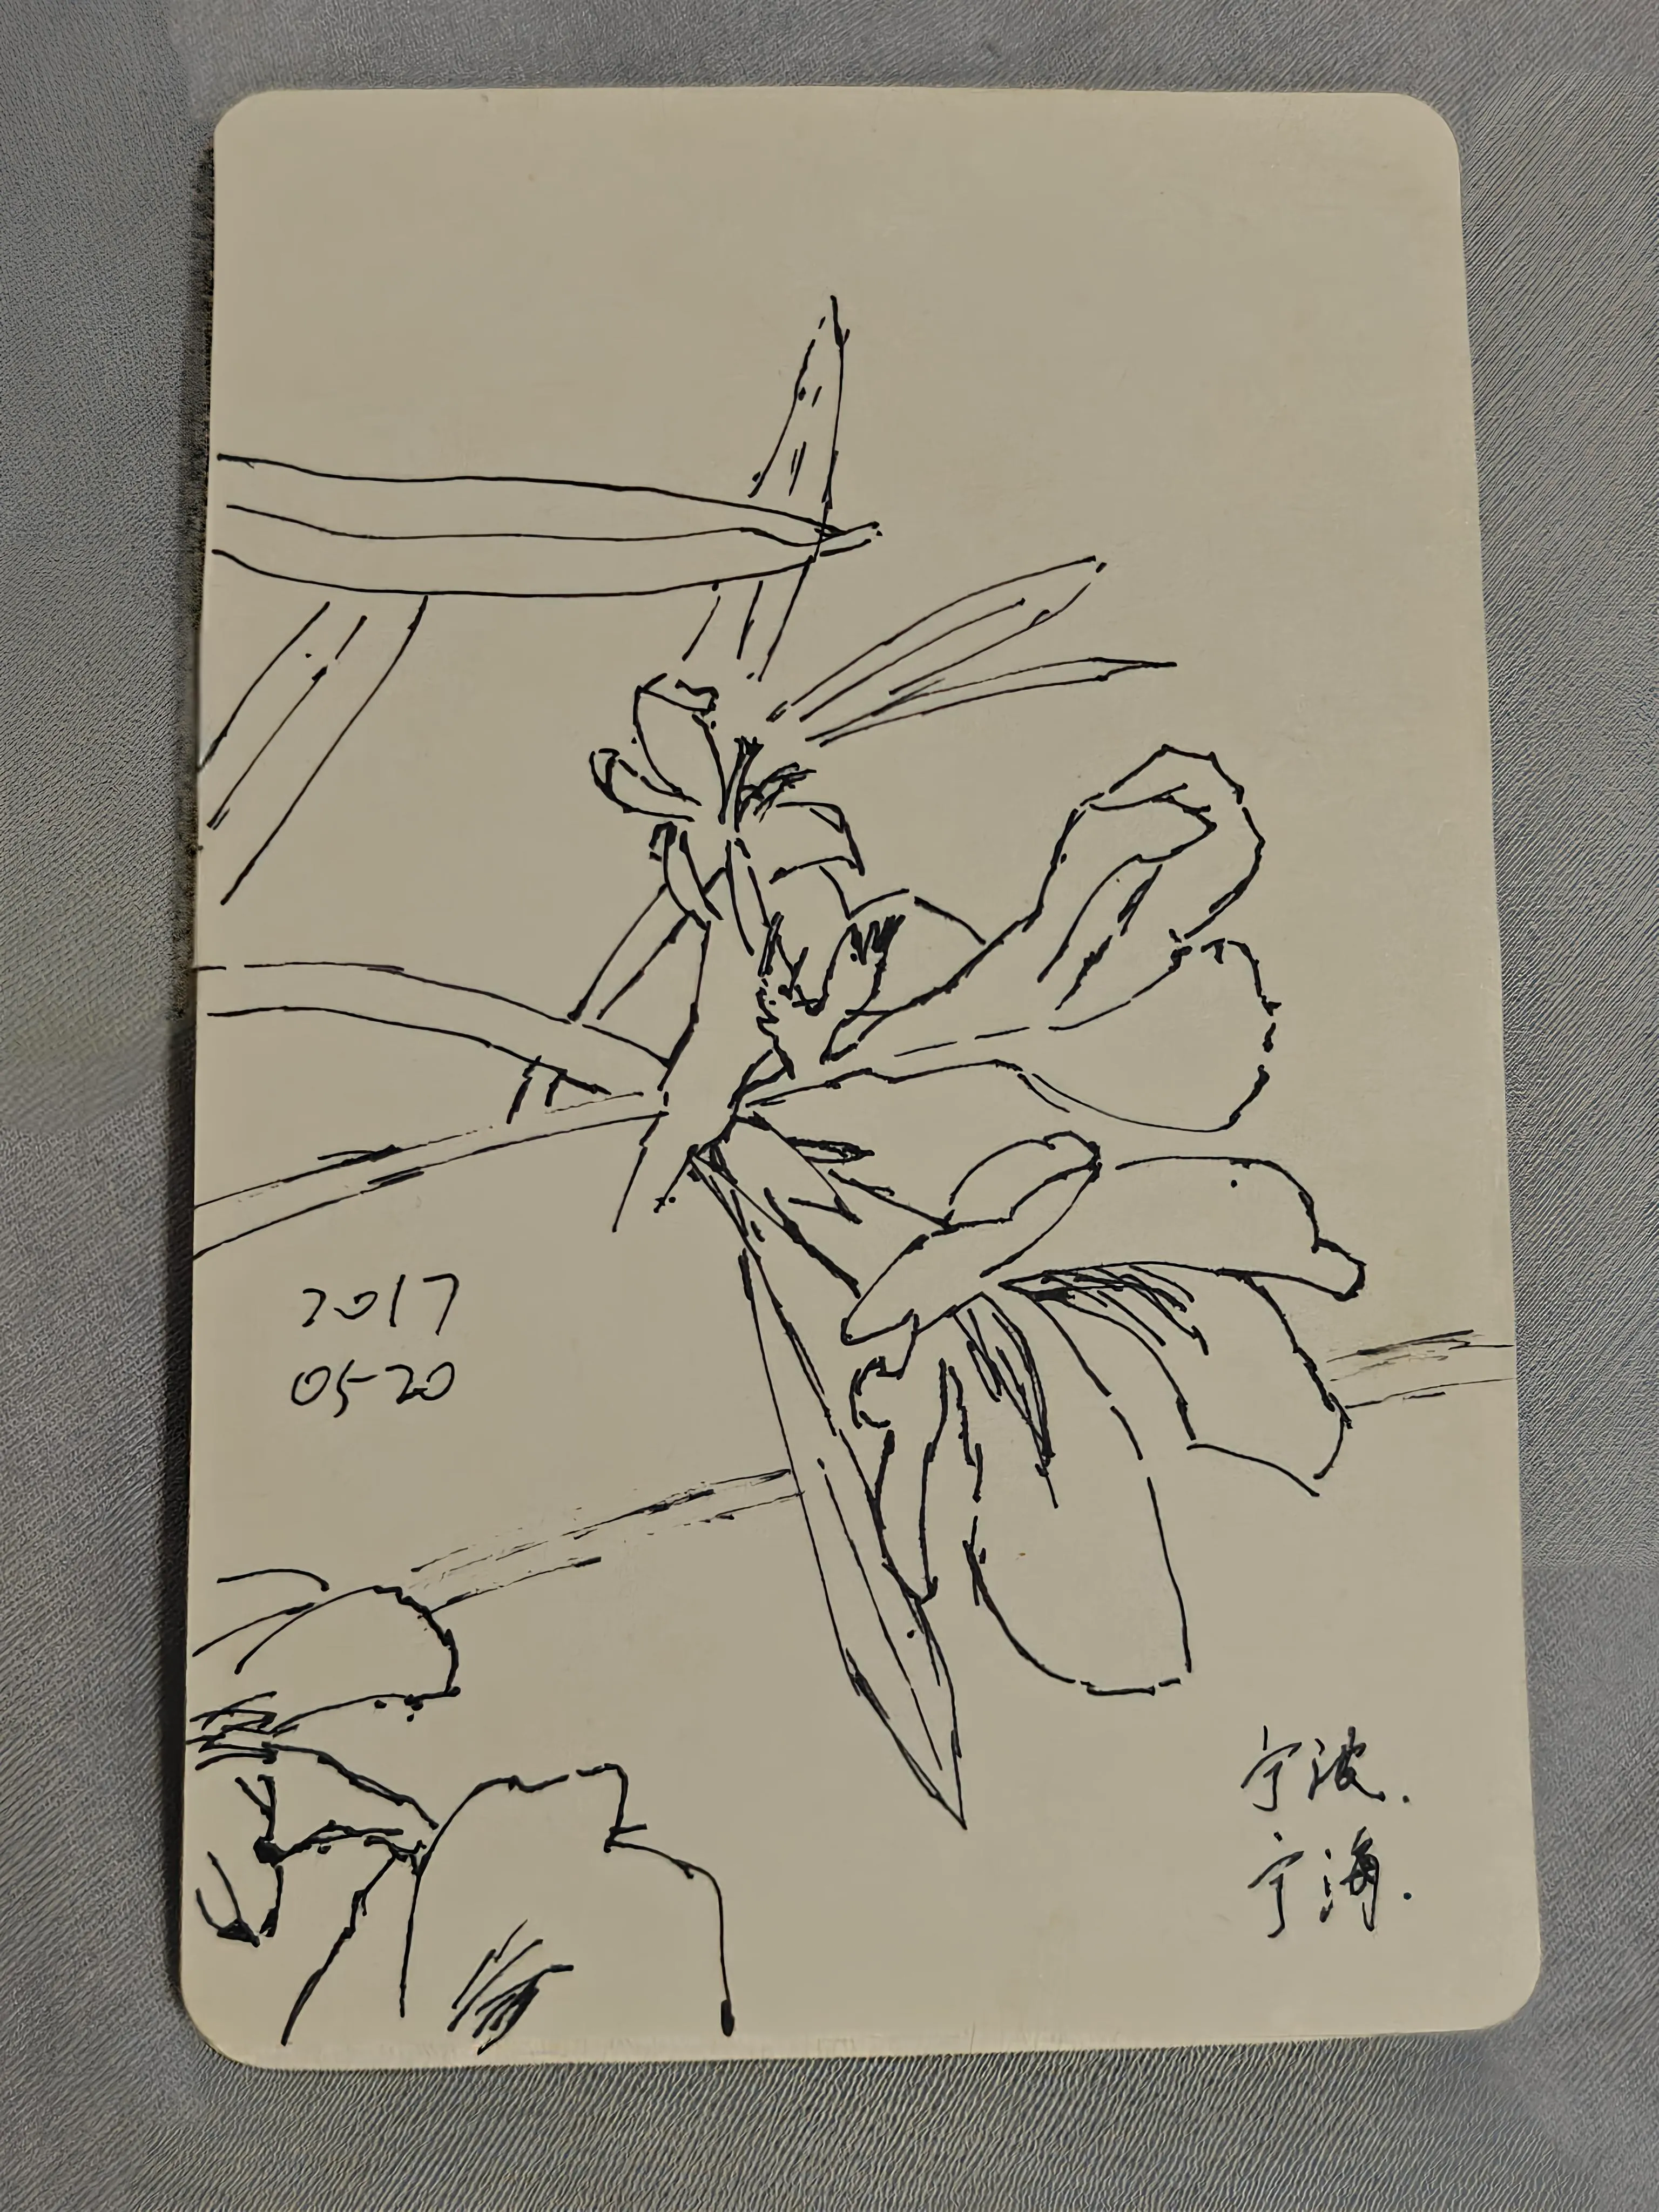 2017
05-20
宁波.
宁海.